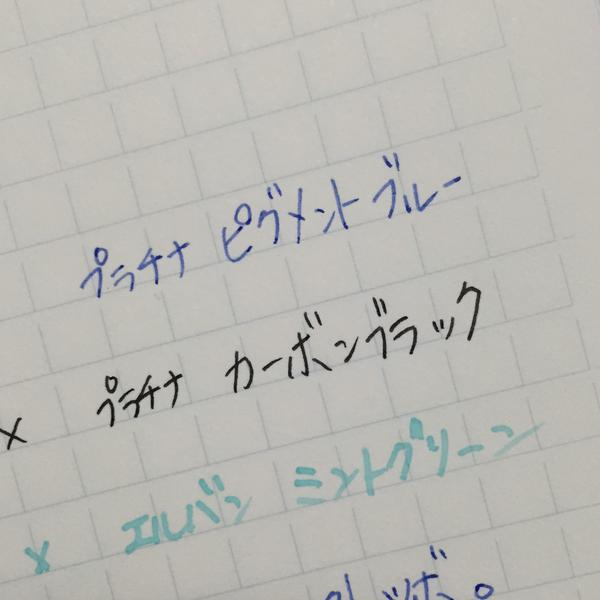 プラチナ ピグメントブルー
× プラチナ カーボンブラック
× エルバン ミントグリーン